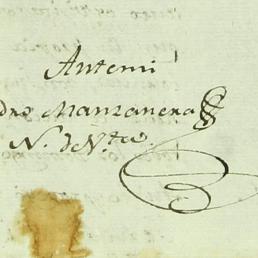 Antemi
dro Manzanera
N. de V.ta